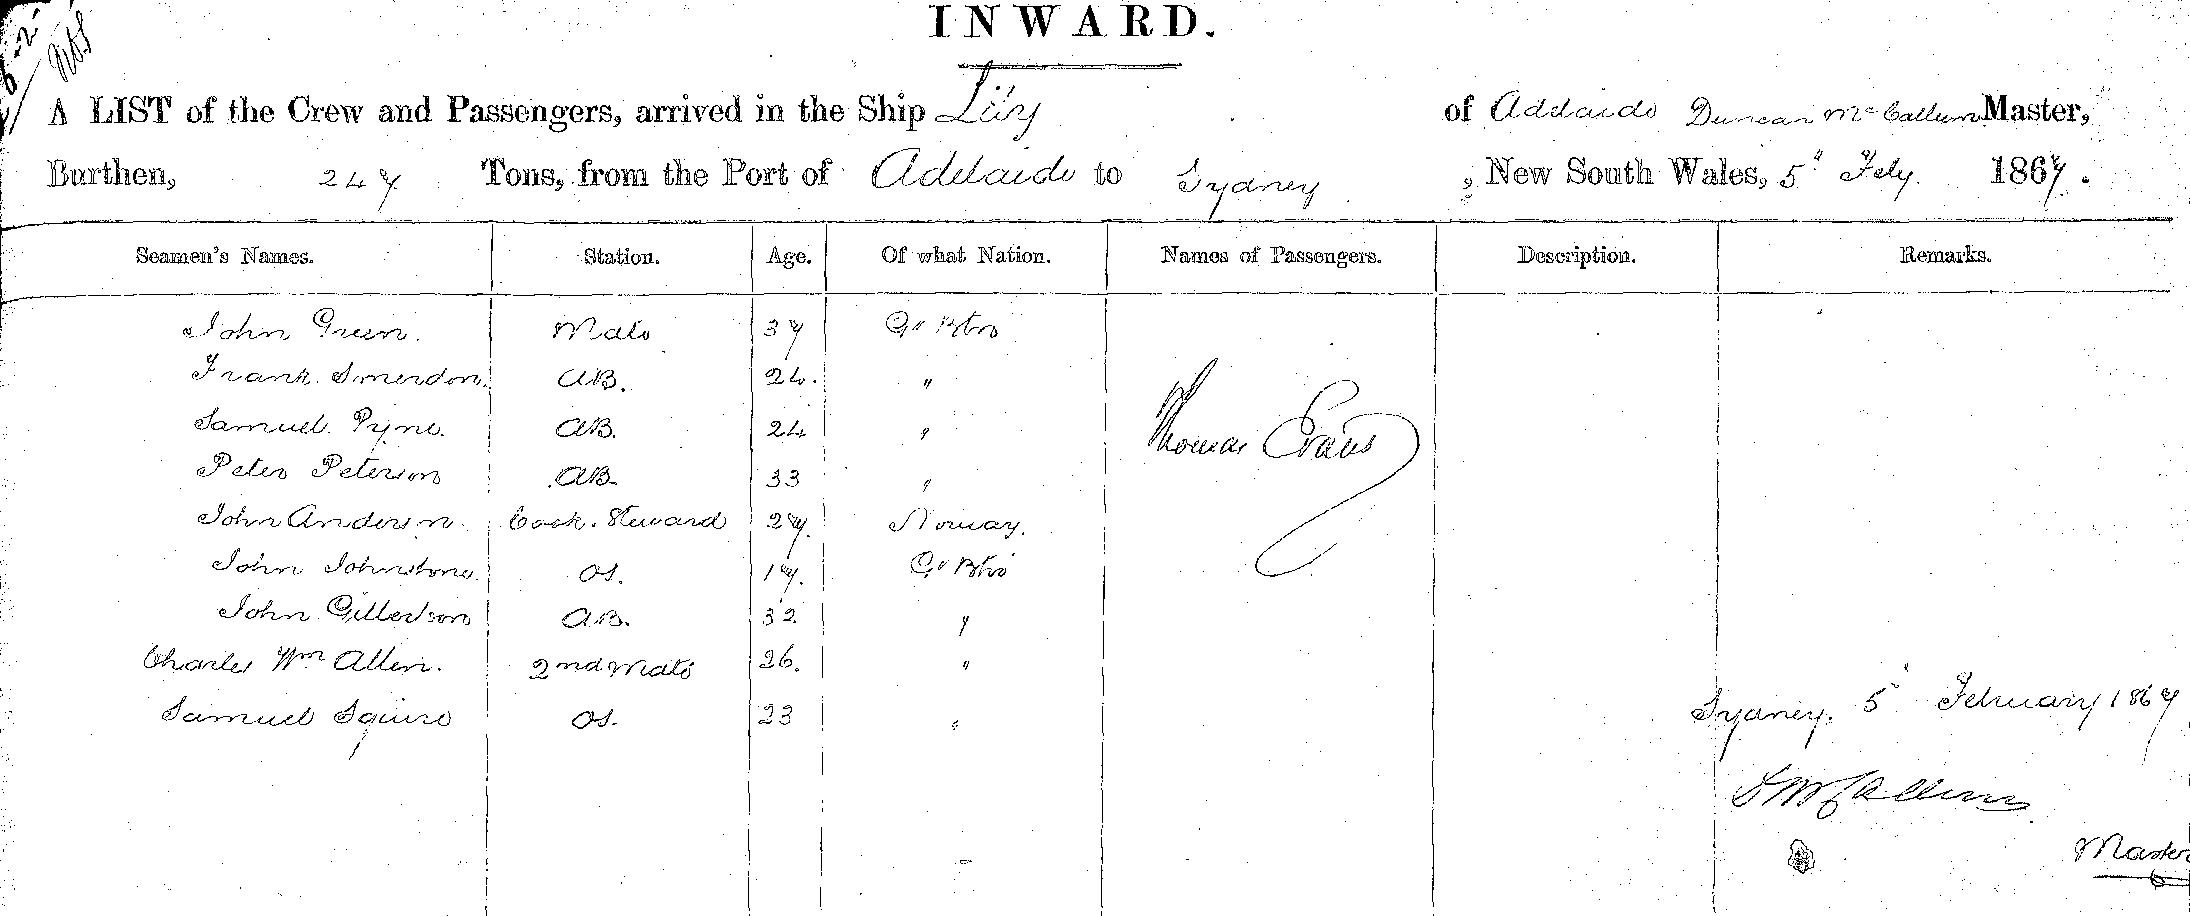 INWARD.
A LIST of the Crew and Passengers, arrived in the Ship Lily of Adelaide Duncan McCallum Master,
Burthen, 247 Tons, from the Port of Adelaide to Sydney, New South Wales, 5" Feby. 1867.
Seamen's Names. Station. Age. Of what Nation. Names of Passengers. Description. Remarks.
John Green. Mate 37 Gt Btn
Frank Smerdon. AB. 24. "
Samuel Pyne. AB. 24 "
Peter Peterson AB. 33 "
Thomas Evans
John Anderson. Cook. Steward 27. Norway.
John Johnstone. OS. 17. Gt Btn
John Gilbertson AB. 32 "
Charles Wm Allen. 2nd Mate 26. "
Samuel Squire OS. 23 "
Sydney. 5" February 1867
D McCallum
Master